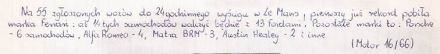 Na 55 zgłoszonych wozów do 24godzinnego wyścigu w Le Mans, pierwszy już rekord pobiła
marka Ferrari: aż 14 tych samochodów walczyć będzie z 13 Fordami. Pozostałe marki to: Porsche
- 6 samochodów, Alfa Romeo - 4, Matra BRM - 3, Austin Healey - 2 i inne
(Motor 16/66)